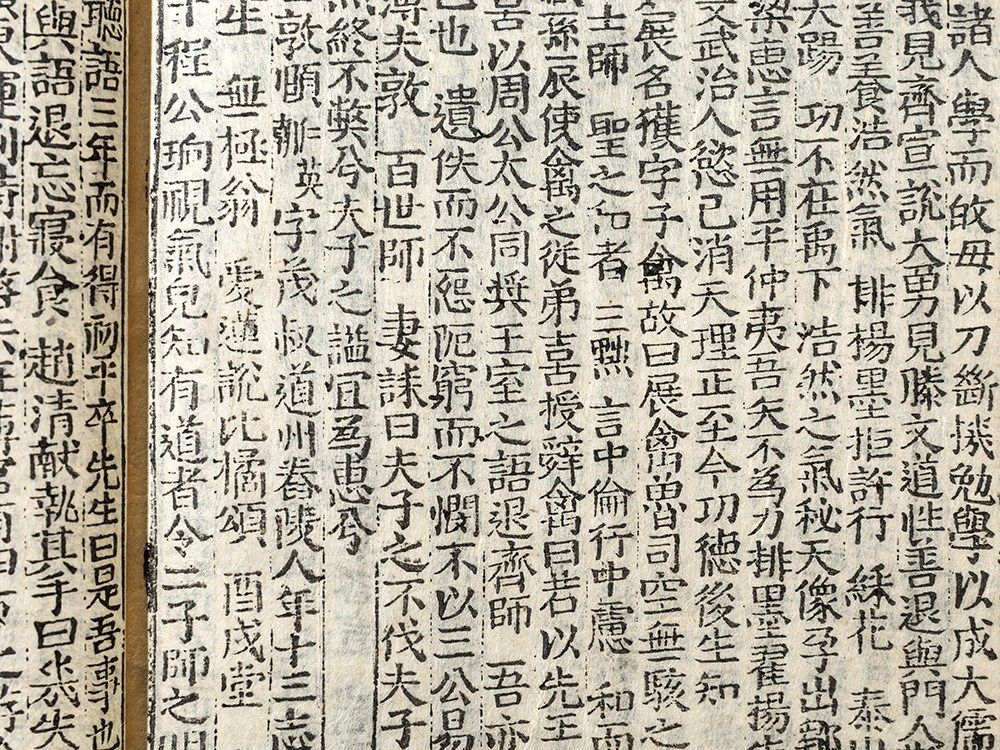 諸人學而敀毋以刀斷機勉學以成大儒
我見齊宣說大勇見滕文道性善退與門人
善養浩然氣 排楊墨拒許行 綵花 泰山
大踢 功不在禹下 浩然之氣秘天像孕出鄒
梁惠言無用干仲夷吾矣不為力排墨翟楊
文武治人慾已消天理正至今功徳後生知
展名獲字子禽故曰展禽魯司空無駭之
士師 聖之和者 三黜 言中倫行中慮 和而
孫展使禽之從弟喜授辭禽曰若以先王
喜以周公太公同奨王室之語退齊師 吾亦
也 遺佚而不怨阨窮而不憫不以三公易
夫敦 百世師 妻誄曰夫子之不伐夫子
終不弊兮夫子之謚宜為惠兮
敦頤 英字茂叔道州舂陵人年十三志
生 無極翁 愛蓮說比橘頌 酉戌堂
程公珦視氣皃知有道者令二子師之明
聽語三年而有得 卒先生曰是吾事也
與語退忘寢食 趙清献執其手曰㡬失